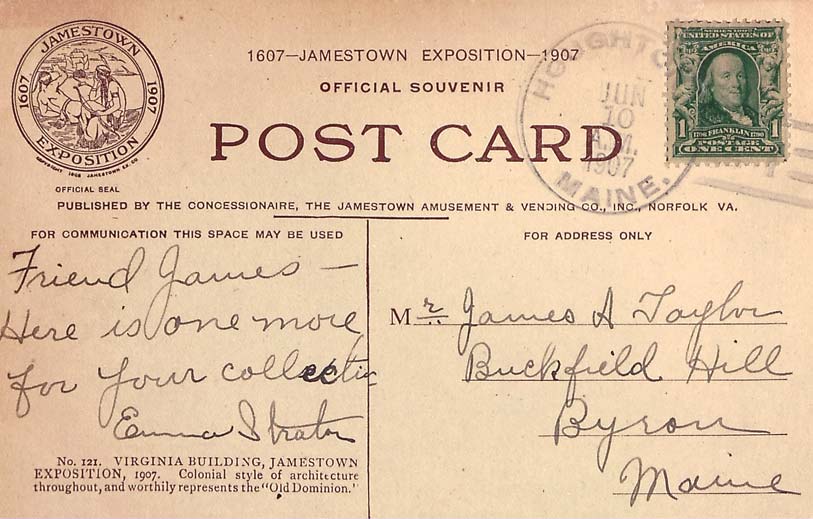 JAMESTOWN
1607 1907
EXPOSITION
COPYRIGHT 1906 JAMESTOWN EX. CO.
OFFICIAL SEAL
1607—JAMESTOWN EXPOSITION—1907
OFFICIAL SOUVENIR
POST CARD
HOUGHTO
JUN
10
A.M.
1907
MAINE.
SERIES 1902
UNITED STATES OF
AMERICA
1 1706 FRANKLIN 1790 1
POSTAGE
ONE CENT
PUBLISHED BY THE CONCESSIONAIRE, THE JAMESTOWN AMUSEMENT & VENDING CO., INC., NORFOLK VA.
FOR COMMUNICATION THIS SPACE MAY BE USED
Friend James —
Here is one more
for your collectin
Emma
No. 121. VIRGINIA BUILDING, JAMESTOWN
EXPOSITION, 1907. Colonial style of architecture
throughout, and worthily represents the "Old Dominion."
FOR ADDRESS ONLY
Mr. James A Taylor
Buckfield Hill
Byron
Maine